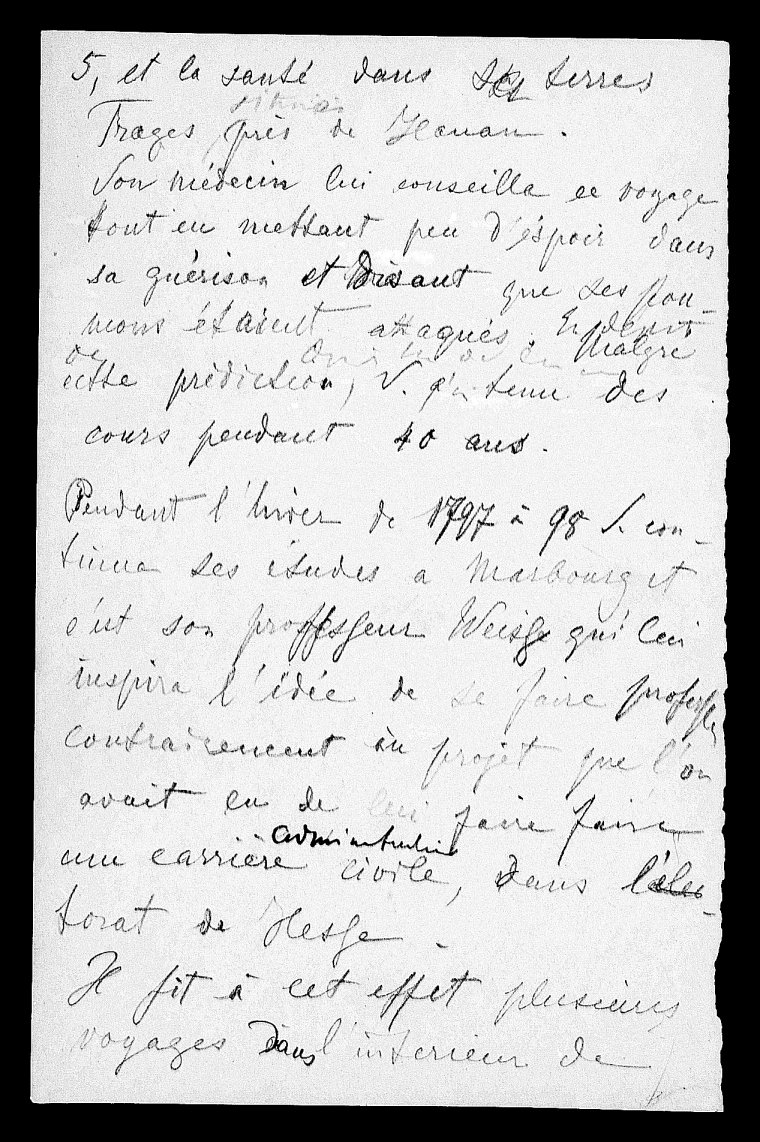 5, et la santé dans ses terres
situées
Trages près de Hanau.
Son médecin lui conseilla ce voyage
tout en mettant peu d'éspoir dans
sa guérison et disant que ses pou-
mons étaient attaqués. En dépit
de Malgré
cette prédiction, S. a tenu des
cours pendant 40 ans.
Pendant l'hiver de 1797 à 98 S. con-
tinua ses études a Marbourg et
c'est son professeur Weiss qui lui
inspira l'idée de se faire profess
contrairement au projet que l'on
avait eu de lui faire faire
une carrière civile, dans l'élec-
torat de Hesse.
Il fit à cet effet plusieurs
voyages dans l'interieur de